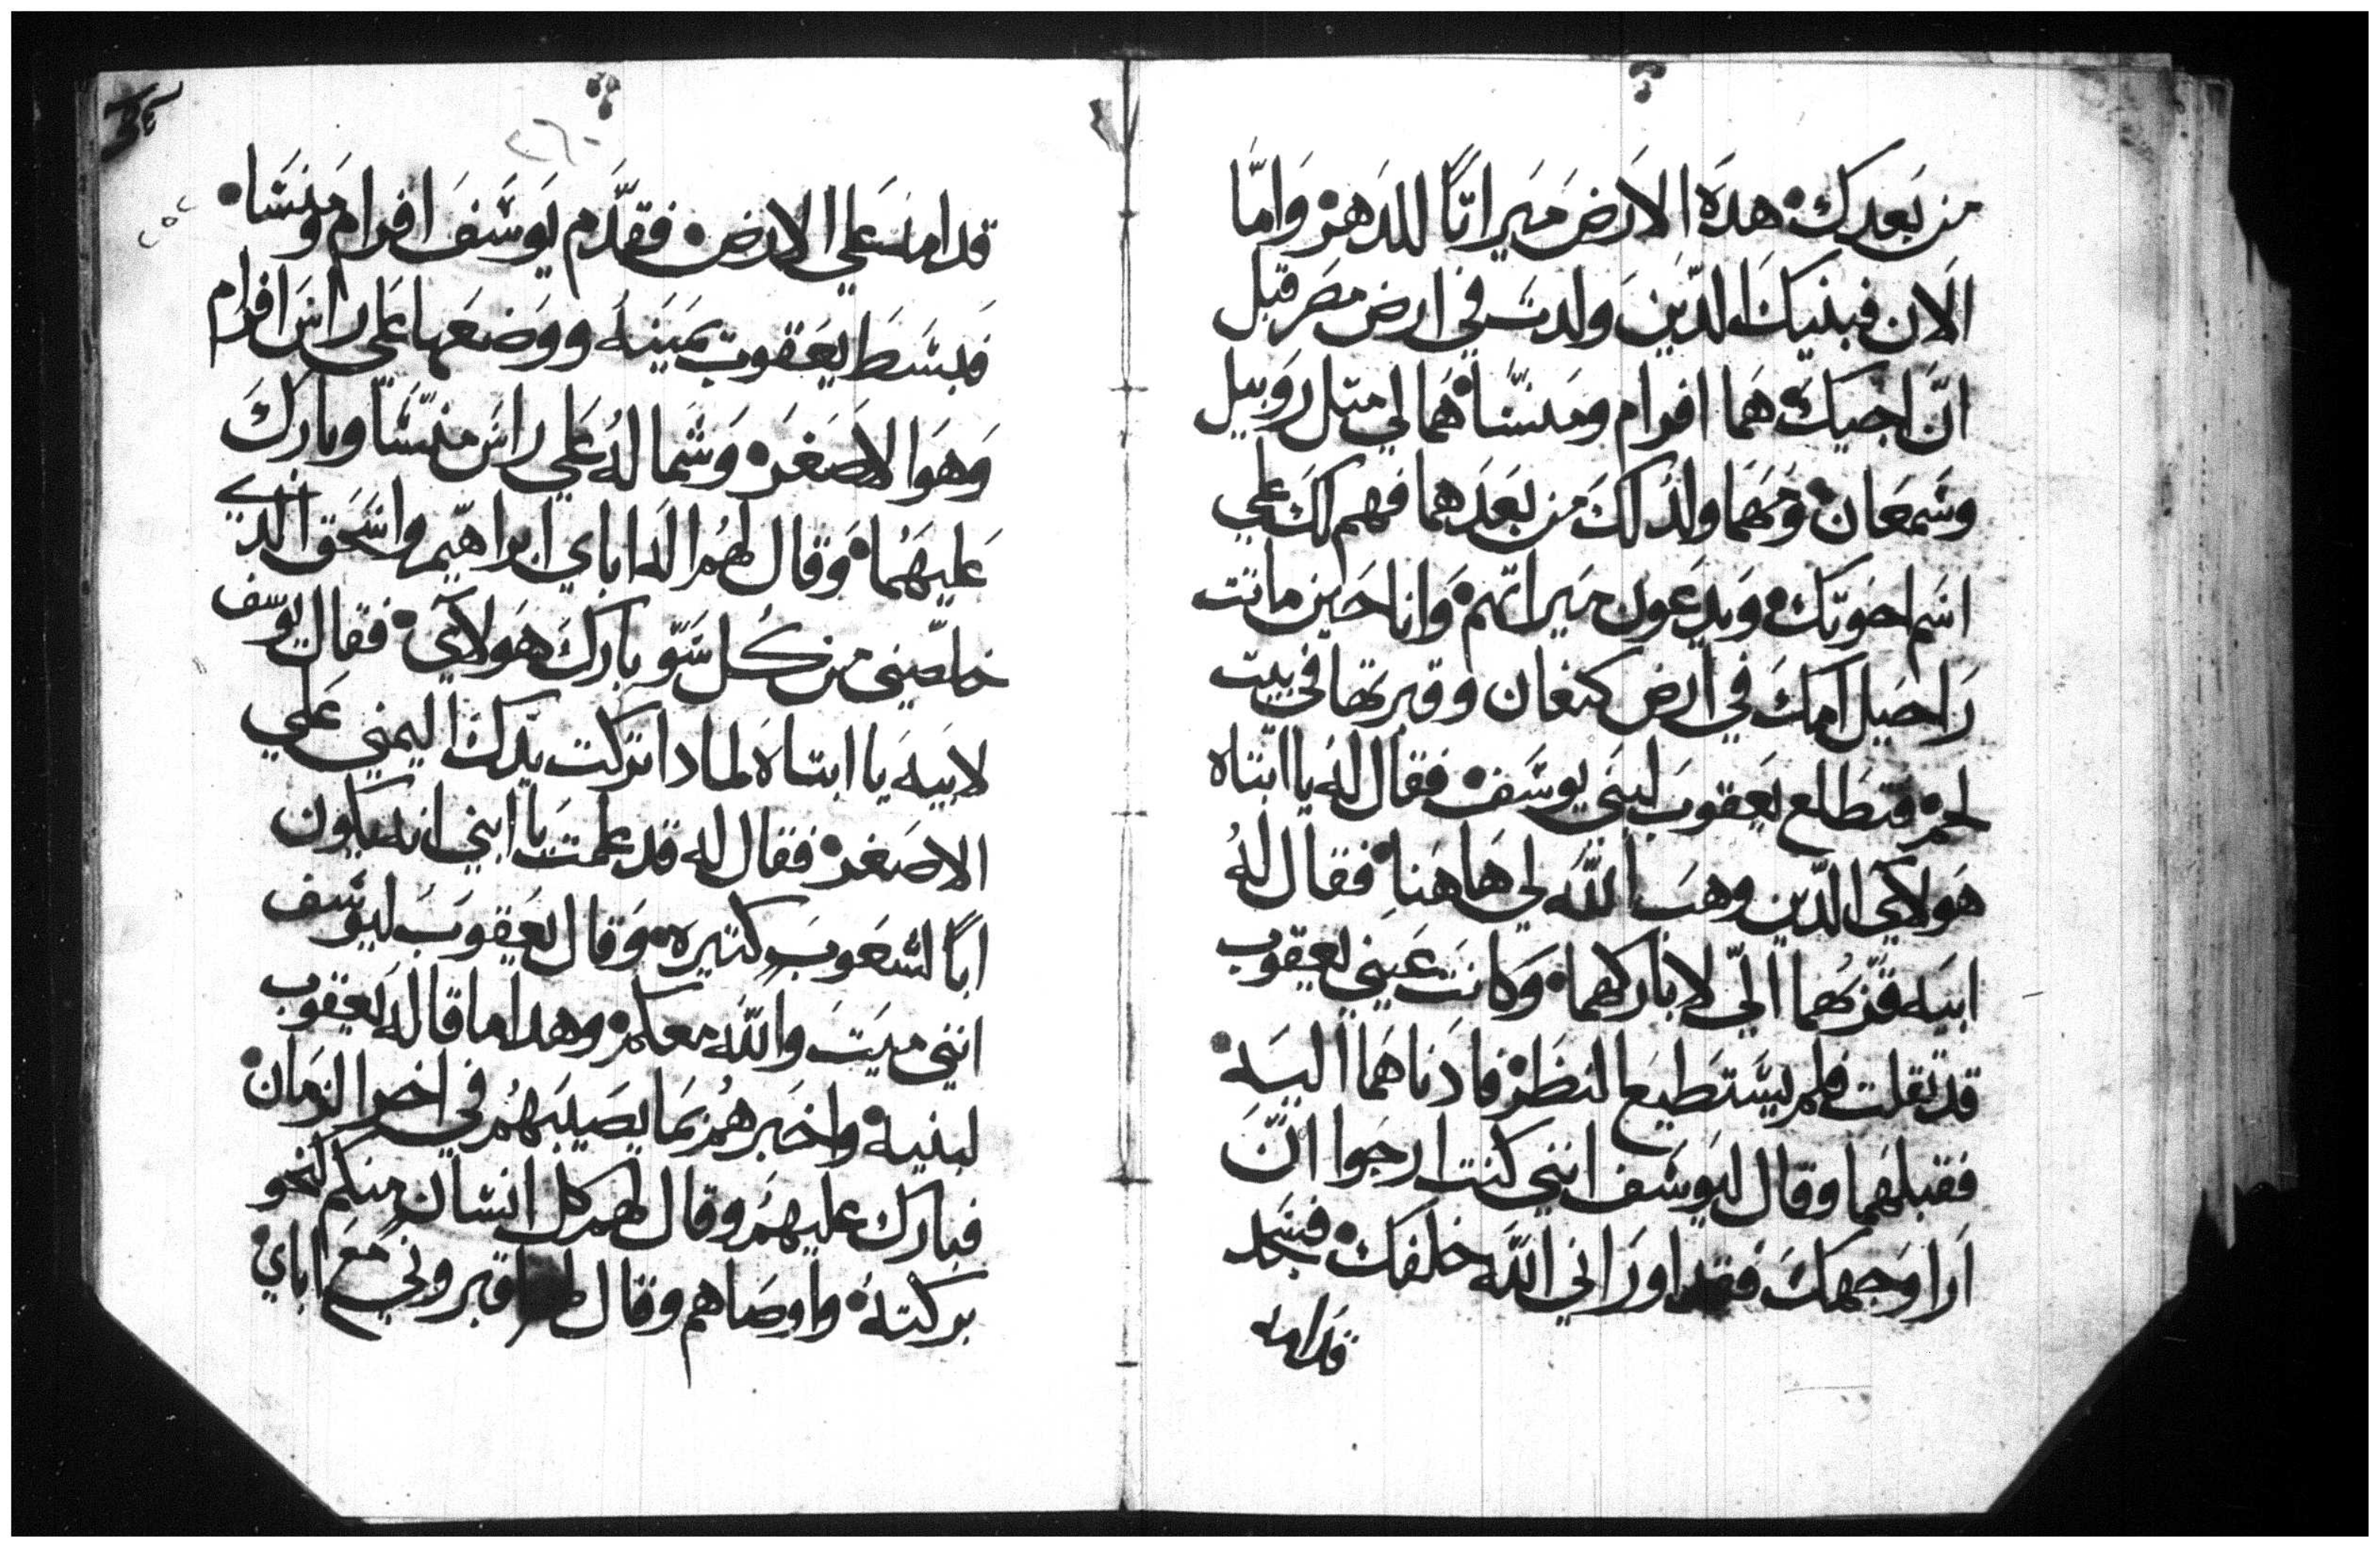 من بعدك هده الارض ميراتًا للدهر واما
الان فبنيك الدين ولدت في ارض مصر قبل
ان اجيك هما افرام ومنسا هما لي متل روبيل
وشمعان ومهما ولد لك من بعدهما فهم لك علي
اسم اخوتك ويدعون ميراتهم وانا حين ماتت
راحيل امك في ارض كنعان وقبرتها في بيت
لحم فتطلع يعقوب لبني يوسف فقال له يا ابتاه
هولاي الدين وهب الله لي هاهنا فقال له
ابيه قربهما اليّ لاباركهما وكانت عيني يعقوب
قد تقلت فلم يستطيع النظر فادناهما اليه
فقبلهما وقال ليوسف انني كنت ارجوا ان
ارا وجهك فقد اوراني الله خلفك فسجد
قدامه
٢٦٠
قدامه علي الارض فقدم يوسف افرام ومنسا
فبسط يعقوب يمينه ووضعها علي راس افرام
وهوا الاصغر وشماله علي راس منسا وبارك
عليهما وقال لهم اله اباي ابراهيم واسحق الدي
خلصني من كل سو بارك هولاي فقال يوسف
لابيه يا ابتاه لمادا تركت يدك اليمني علي
الاصغر فقال له قد علمت يا ابني انه يكون
ابًا لشعوب كتيره وقال يعقوب ليوسف
انني ميت والله معكم وهدا ما قاله يعقوب
لبنيه واخبرهم بما يصيبهم في اخر الزمان
فبارك عليهم وقال لهم كل انسان منكم لنحو
بركته واوصاهم وقال اقبروني مع اباي